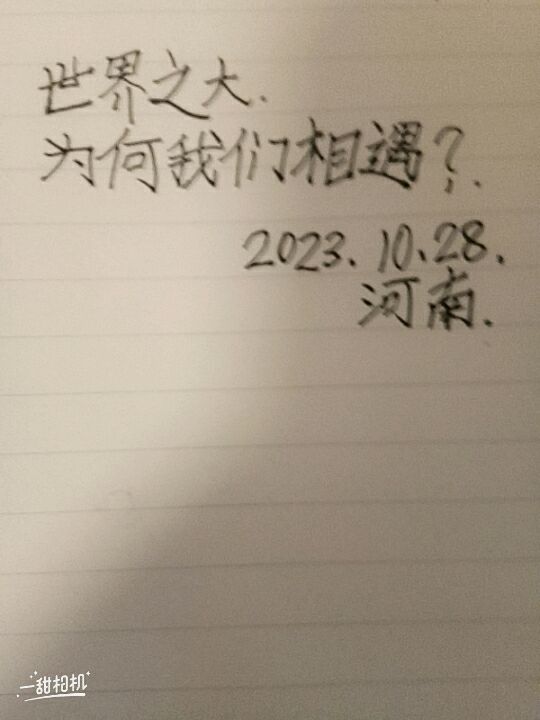 世界之大.
为何我们相遇?.
2023.10.28.
河南.
一甜相机